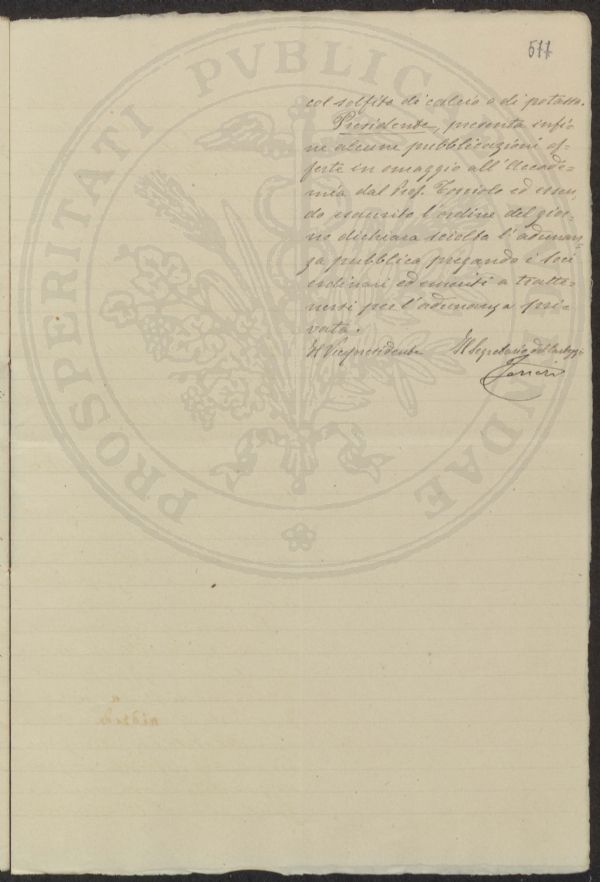 511
col solfito di calcio o di potassa.
Presidente, presenta infi-
ne alcune pubblicazioni of-
ferte in omaggio all'Accade-
mia dal Prof. Toniolo ed essen-
do esaurito l'ordine del gior-
no dichiara sciolta l'adunan-
za pubblica pregando i Soci
ordinari ed emeriti a tratte-
nersi per l'adunanza pri-
vata.
Il Vicepresidente Il Segretario del Carteggio
PROSPERITATI PVBLICAE